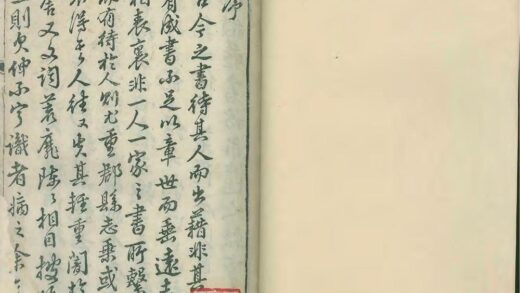 序
古今之書待其人而出藉非其
有成書不足以章世而垂遠
相表裏非一人一家之書所繫
有待於人則尤重郡縣志乘或
不得其人往又失其輕重闇於
舍又文詞蕪龐陳相因
則更仲不宁識者病之余